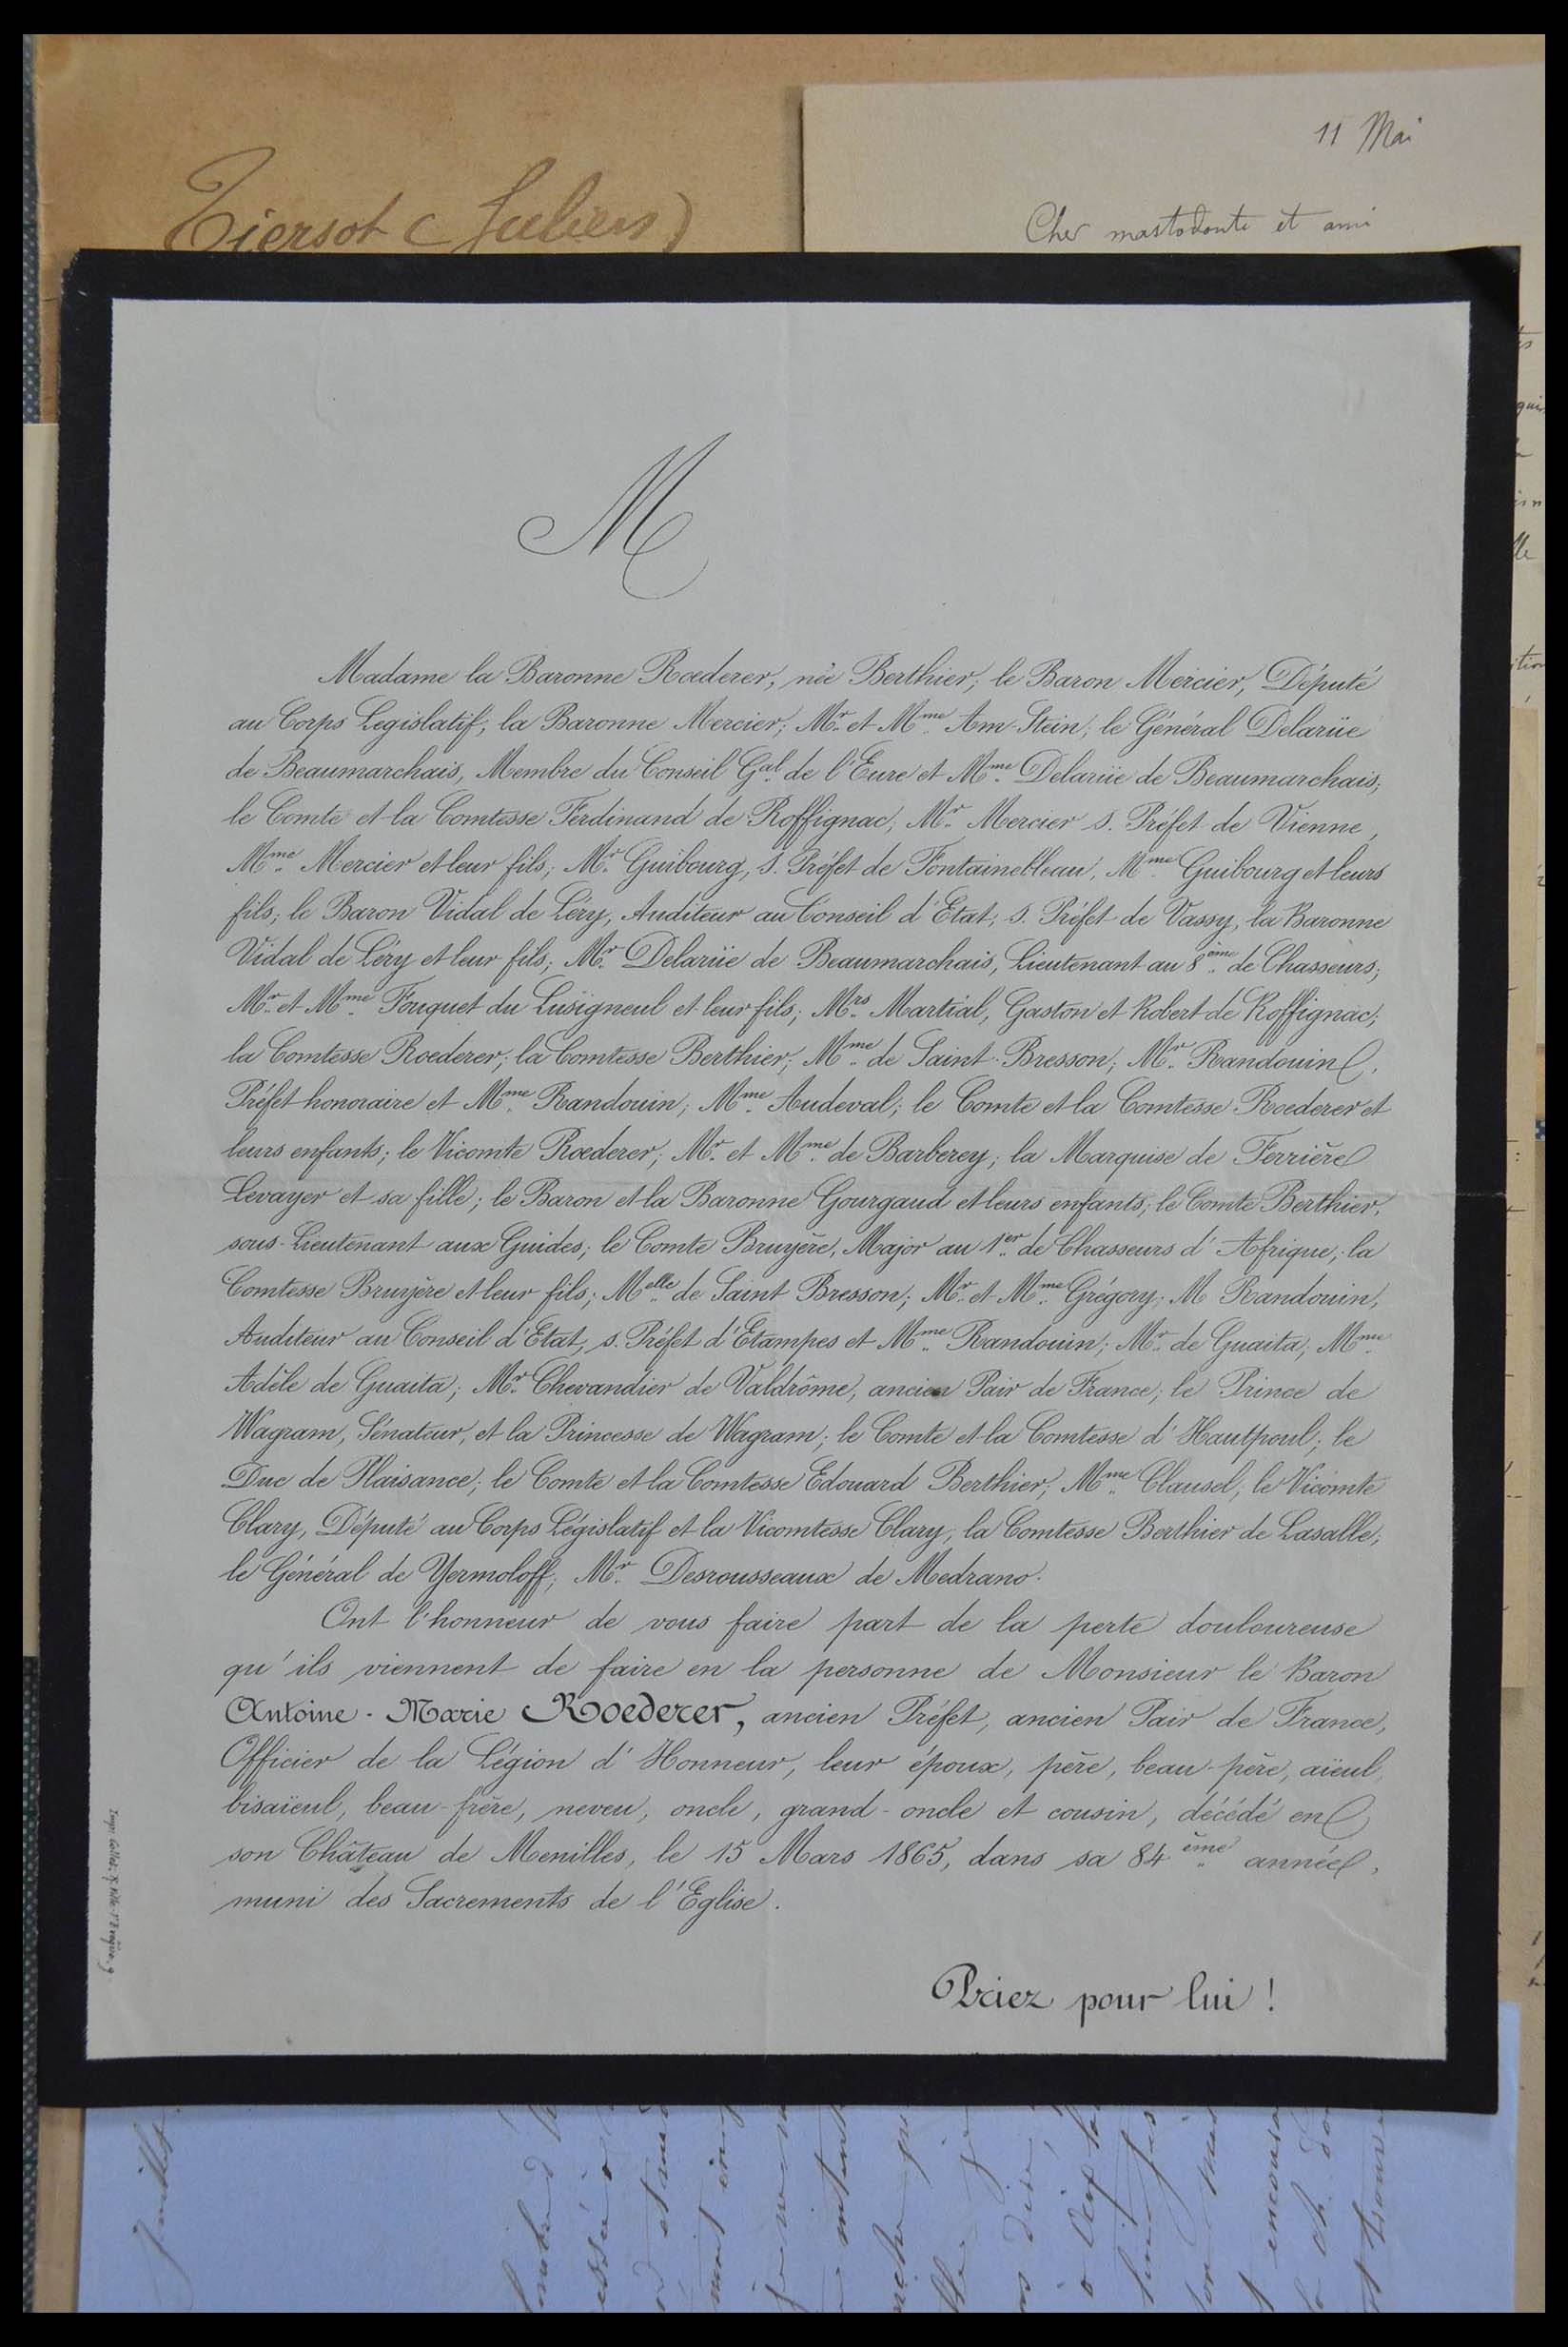 Tiersot (Julien)
11 Mai
Cher mastodonte et ami
M
Madame la Baronne Roederer, née Berthier; le Baron Mercier, Député
au Corps Législatif; la Baronne Mercier; Mr. et Mme. Am-Stein; le Général Delarüe
de Beaumarchais, Membre du Conseil Gal. de l'Eure et Mme. Delarüe de Beaumarchais;
le Comte et la Comtesse Ferdinand de Roffignac; Mr. Mercier S. Préfet de Vienne,
Mme. Mercier et leur fils; Mr. Guibourg, S. Préfet de Fontainebleau, Mme. Guibourg et leurs
fils; le Baron Vidal de Léry, Auditeur au Conseil d'Etat, S. Préfet de Vassy, la Baronne
Vidal de Léry et leur fils; Mr. Delarüe de Beaumarchais, Lieutenant au 8ème. de Chasseurs;
Mr. et Mme. Fouquet du Lusigneul et leur fils; Mrs. Martial, Gaston et Robert de Roffignac;
la Comtesse Roederer; la Comtesse Berthier; Mme. de Saint-Bresson; Mr. Randouin,
Préfet honoraire et Mme. Randouin; Mme. Audeval; le Comte et la Comtesse Roederer et
leurs enfants; le Vicomte Roederer; Mr. et Mme. de Barberey; la Marquise de Ferrière
Levayer et sa fille; le Baron et la Baronne Gourgaud et leurs enfants; le Comte Berthier,
sous-Lieutenant aux Guides; le Comte Bruyère, Major au 1er. de Chasseurs d'Afrique, la
Comtesse Bruyère et leur fils; Melle. de Saint Bresson; Mr. et Mme. Grégory; M Randouin,
Auditeur au Conseil d'Etat, s. Préfet d'Etampes et Mme. Randouin; Mr. de Guaita; Mme.
Adèle de Guaita; Mr. Chevandier de Valdrôme, ancien Pair de France; le Prince de
Wagram, Sénateur, et la Princesse de Wagram; le Comte et la Comtesse d'Hautpoul; le
Duc de Plaisance; le Comte et la Comtesse Edouard Berthier; Mme. Clausel; le Vicomte
Clary, Député au Corps Législatif et la Vicomtesse Clary, la Comtesse Berthier de Lasalle;
le Général de Yermoloff; Mr. Desrousseaux de Medrano.
Ont l'honneur de vous faire part de la perte douloureuse
qu'ils viennent de faire en la personne de Monsieur le Baron
Antoine-Marie Roederer, ancien Préfet, ancien Pair de France,
Officier de la Légion d'Honneur, leur époux, père, beau-père, aïeul,
bisaïeul, beau-frère, neveu, oncle, grand-oncle et cousin, décédé en
son Château de Menilles, le 15 Mars 1865, dans sa 84ème. année,
muni des Sacrements de l'Eglise.
Priez pour lui !